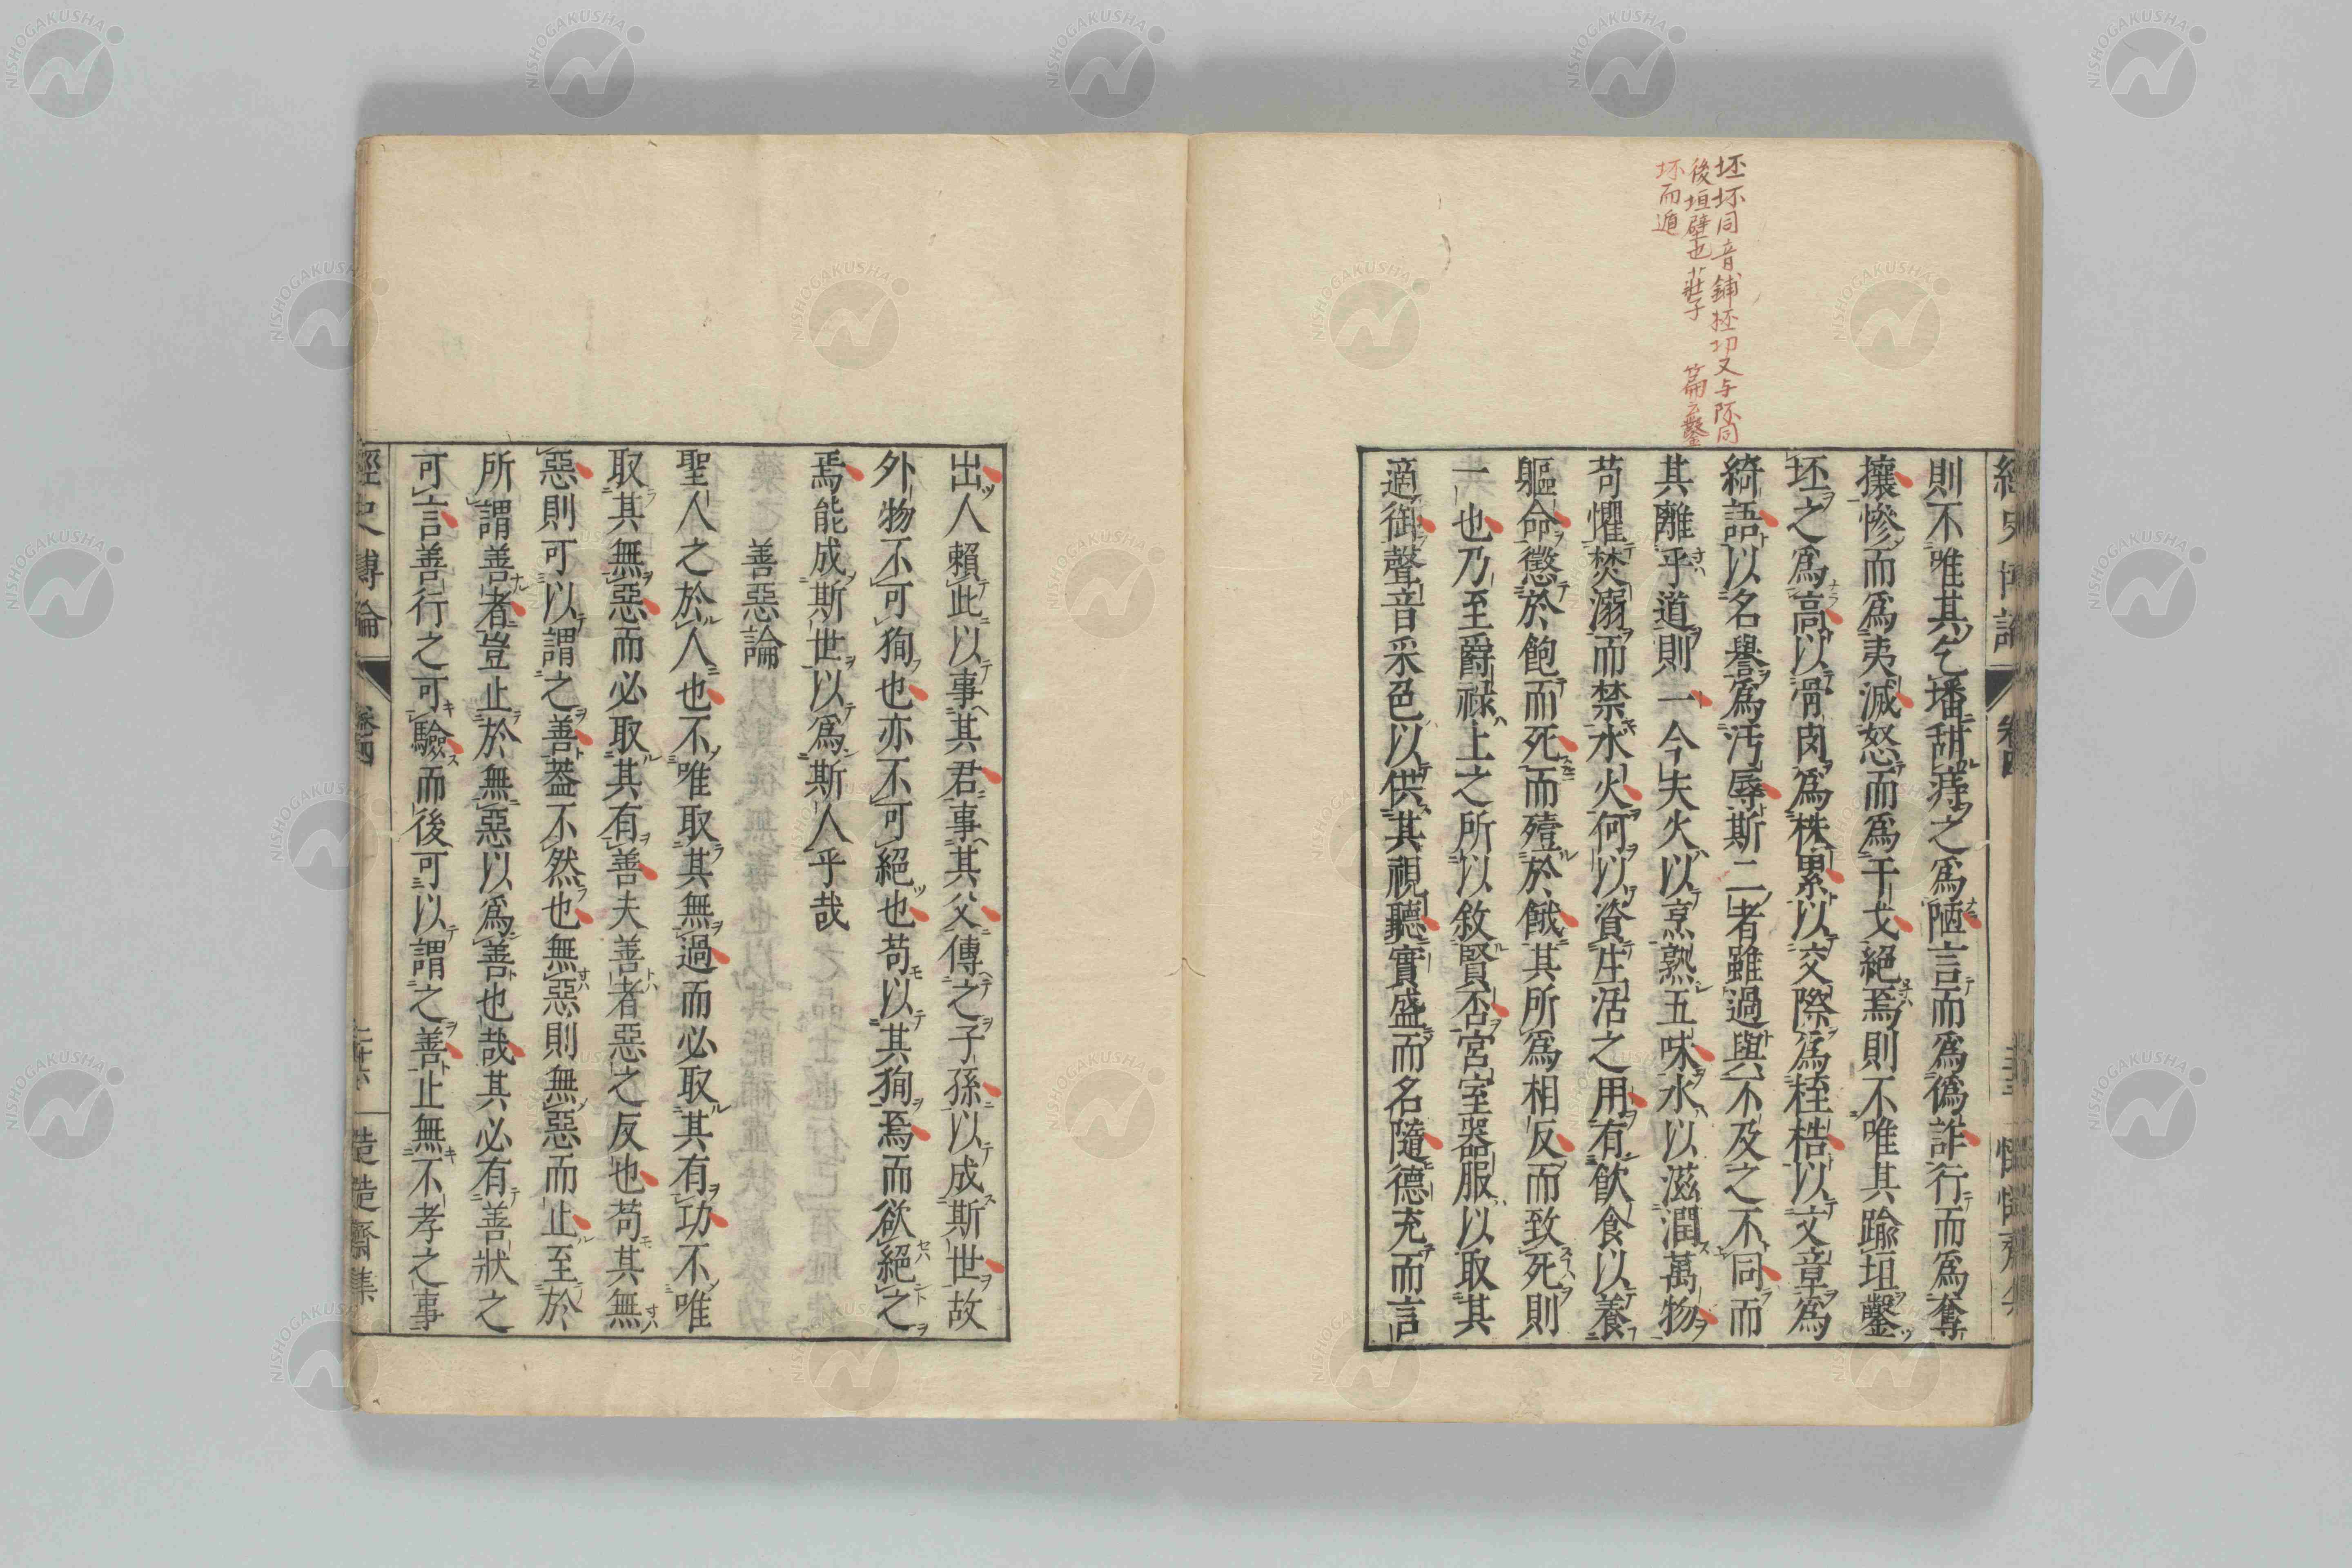 坯坏同音鋪坯切又与阫同
後垣壁也莊子 篇云鑿
坏而遁
則不唯其乞墦甜痔之爲陋言而爲僞詐行而爲奪
攘慘而爲夷滅怒而爲干戈絕焉則不唯其踰垣鑿
坯之爲高以骨肉爲株累以交際爲桎梏以文章爲
綺語以名譽爲汚辱斯二者雖過與不及之不同而
其離乎道則一今夫火以烹熟五味水以滋潤萬物
苟懼焚溺而禁水火何以資生活之用有飮食以養
軀命懲於飽而死而殪於餓其所爲相反而致死則
一也乃至爵祿上之所以敘賢否宮室器服以取其
適御聲音采色以供其視聽實盛而名隨德充而言
出人賴此以事其君事其父傳之子孫以成斯世故
外物不可狥也亦不可絕也苟以其狥焉而欲絕之
焉能成斯世以爲斯人乎哉
善惡論
聖人之於人也不唯取其無過而必取其有功不唯
取其無惡而必取其有善夫善者惡之反也苟其無
惡則可以謂之善葢不然也無惡則無惡而止至於
所謂善者豈止於無惡以爲善也哉其必有善狀之
可言善行之可驗而後可以謂之善止無不孝之事
經史博論
卷四
慥慥齋集
NISHOGAKUSHA